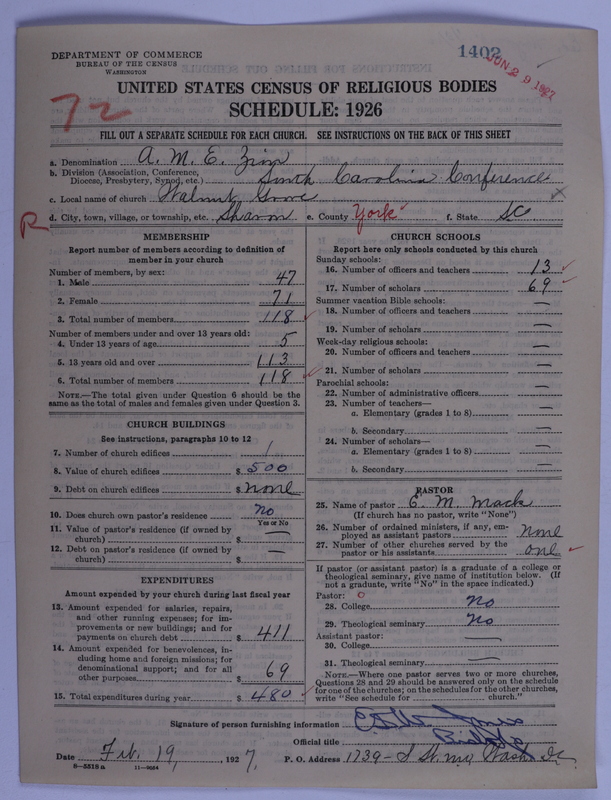 DEPARTMENT OF COMMERCE
BUREAU OF THE CENSUS
WASHINGTON
1402
JUN 29 1927
72
UNITED STATES CENSUS OF RELIGIOUS BODIES
SCHEDULE: 1926
FILL OUT A SEPARATE SCHEDULE FOR EACH CHURCH. SEE INSTRUCTIONS ON THE BACK OF THIS SHEET
a. Denomination A. M. E. Zion
b. Division (Association, Conference, Diocese, Presbytery, Synod, etc.) South Carolina Conference
c. Local name of church Walnut Grove
R
d. City, town, village, or township, etc. Sharon e. County York f. State SC
MEMBERSHIP
Report number of members according to definition of
member in your church
Number of members, by sex:
1. Male 47
2. Female 71
3. Total number of members 118
Number of members under and over 13 years old:
4. Under 13 years of age 5
5. 13 years old and over 113
6. Total number of members 118
NOTE.—The total given under Question 6 should be
same as the total of males and females given under Question 3.
CHURCH BUILDINGS
See instructions, paragraphs 10 to 12
7. Number of church edifices 1
8. Value of church edifices $ 500
9. Debt on church edifices $ none
10. Does church own pastor's residence no
Yes or No
11. Value of pastor's residence (if owned by
church) $ —
12. Debt on pastor's residence (if owned by
church) $ —
EXPENDITURES
Amount expended by your church during last fiscal year
13. Amount expended for salaries, repairs,
and other running expenses; for im-
provements or new buildings; and for
payments on church debt $ 411
14. Amount expended for benevolences, in-
cluding home and foreign missions; for
denominational support; and for all
other purposes $ 69
15. Total expenditures during year $ 480
CHURCH SCHOOLS
Report here only schools conducted by this church
Sunday schools:
16. Number of officers and teachers 13
17. Number of scholars 69
Summer vacation Bible schools:
18. Number of officers and teachers —
19. Number of scholars —
Week-day religious schools:
20. Number of officers and teachers —
21. Number of scholars —
Parochial schools:
22. Number of administrative officers —
23. Number of teachers—
a. Elementary (grades 1 to 8) —
b. Secondary —
24. Number of scholars—
a. Elementary (grades 1 to 8) —
b. Secondary —
PASTOR
25. Name of pastor E. M. Mack
(If church has no pastor, write "None")
26. Number of ordained ministers, if any, em-
ployed as assistant pastors None
27. Number of other churches served by the
pastor or his assistants one
If pastor (or assistant pastor) is a graduate of a college or
theological seminary, give name of institution below. (If
not a graduate, write "No" in the space indicated.)
Pastor: O
28. College No
29. Theological seminary No
Assistant pastor:
30. College —
31. Theological seminary —
NOTE.—Where one pastor serves two or more churches,
Questions 28 and 29 should be answered only on the schedule
for one of the churches; on the schedules for the other churches,
write "See schedule for church."
Signature of person furnishing information
Official title Bishop
Date Feb. 19, 1927. P. O. Address 1739- S St. NW, Wash. DC
8—5518 a 11—9684